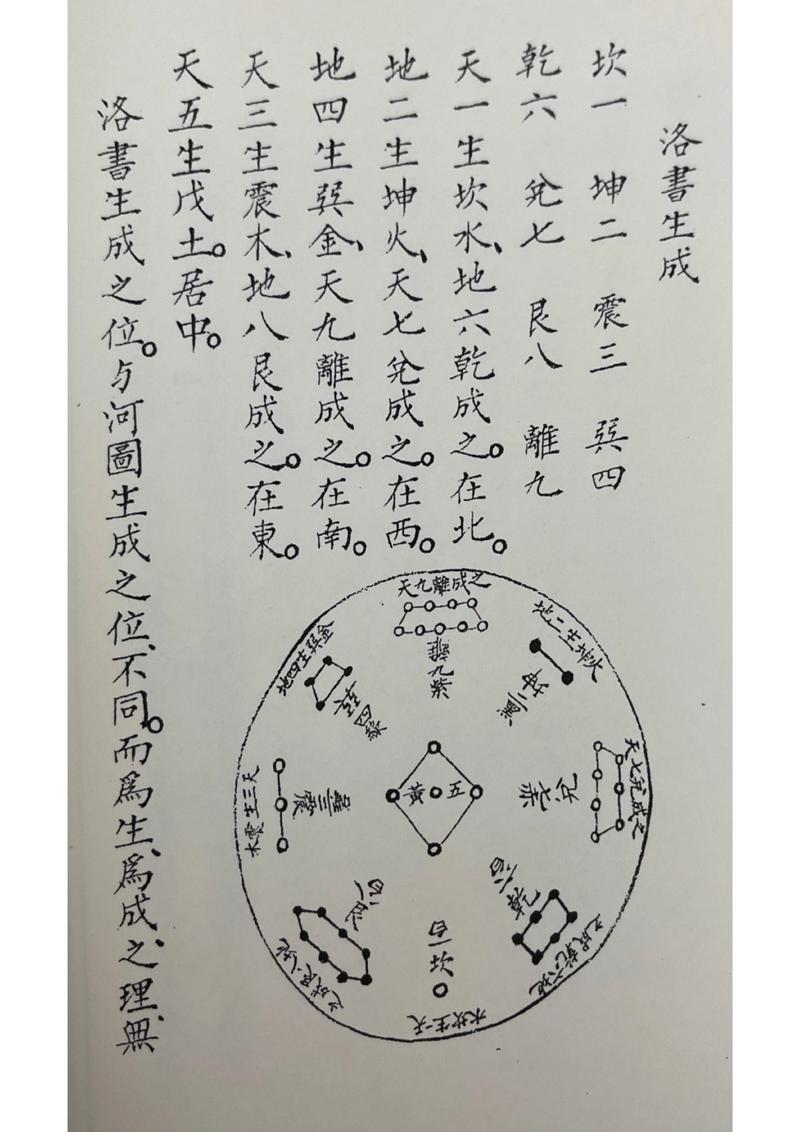 洛書生成
坎一　坤二　震三　巽四
乾六　兌七　艮八　離九
天一生坎水、地六乾成之。在北。
地二生坤火、天七兌成之。在西。
地四生巽金、天九離成之。在南。
天三生震木、地八艮成之。在東。
天五生戊土。居中。
洛書生成之位。与河圖生成之位、不同。而爲生、爲成、之、理、無、
天九離成之
離九紫
地二生坤火
坤二黑
天七兌成之
兌七赤
地六乾成之
乾六白
天一生坎水
坎一白
地八艮成之
艮八白
天三生震木
震三
地四生巽金
巽四綠
五黃